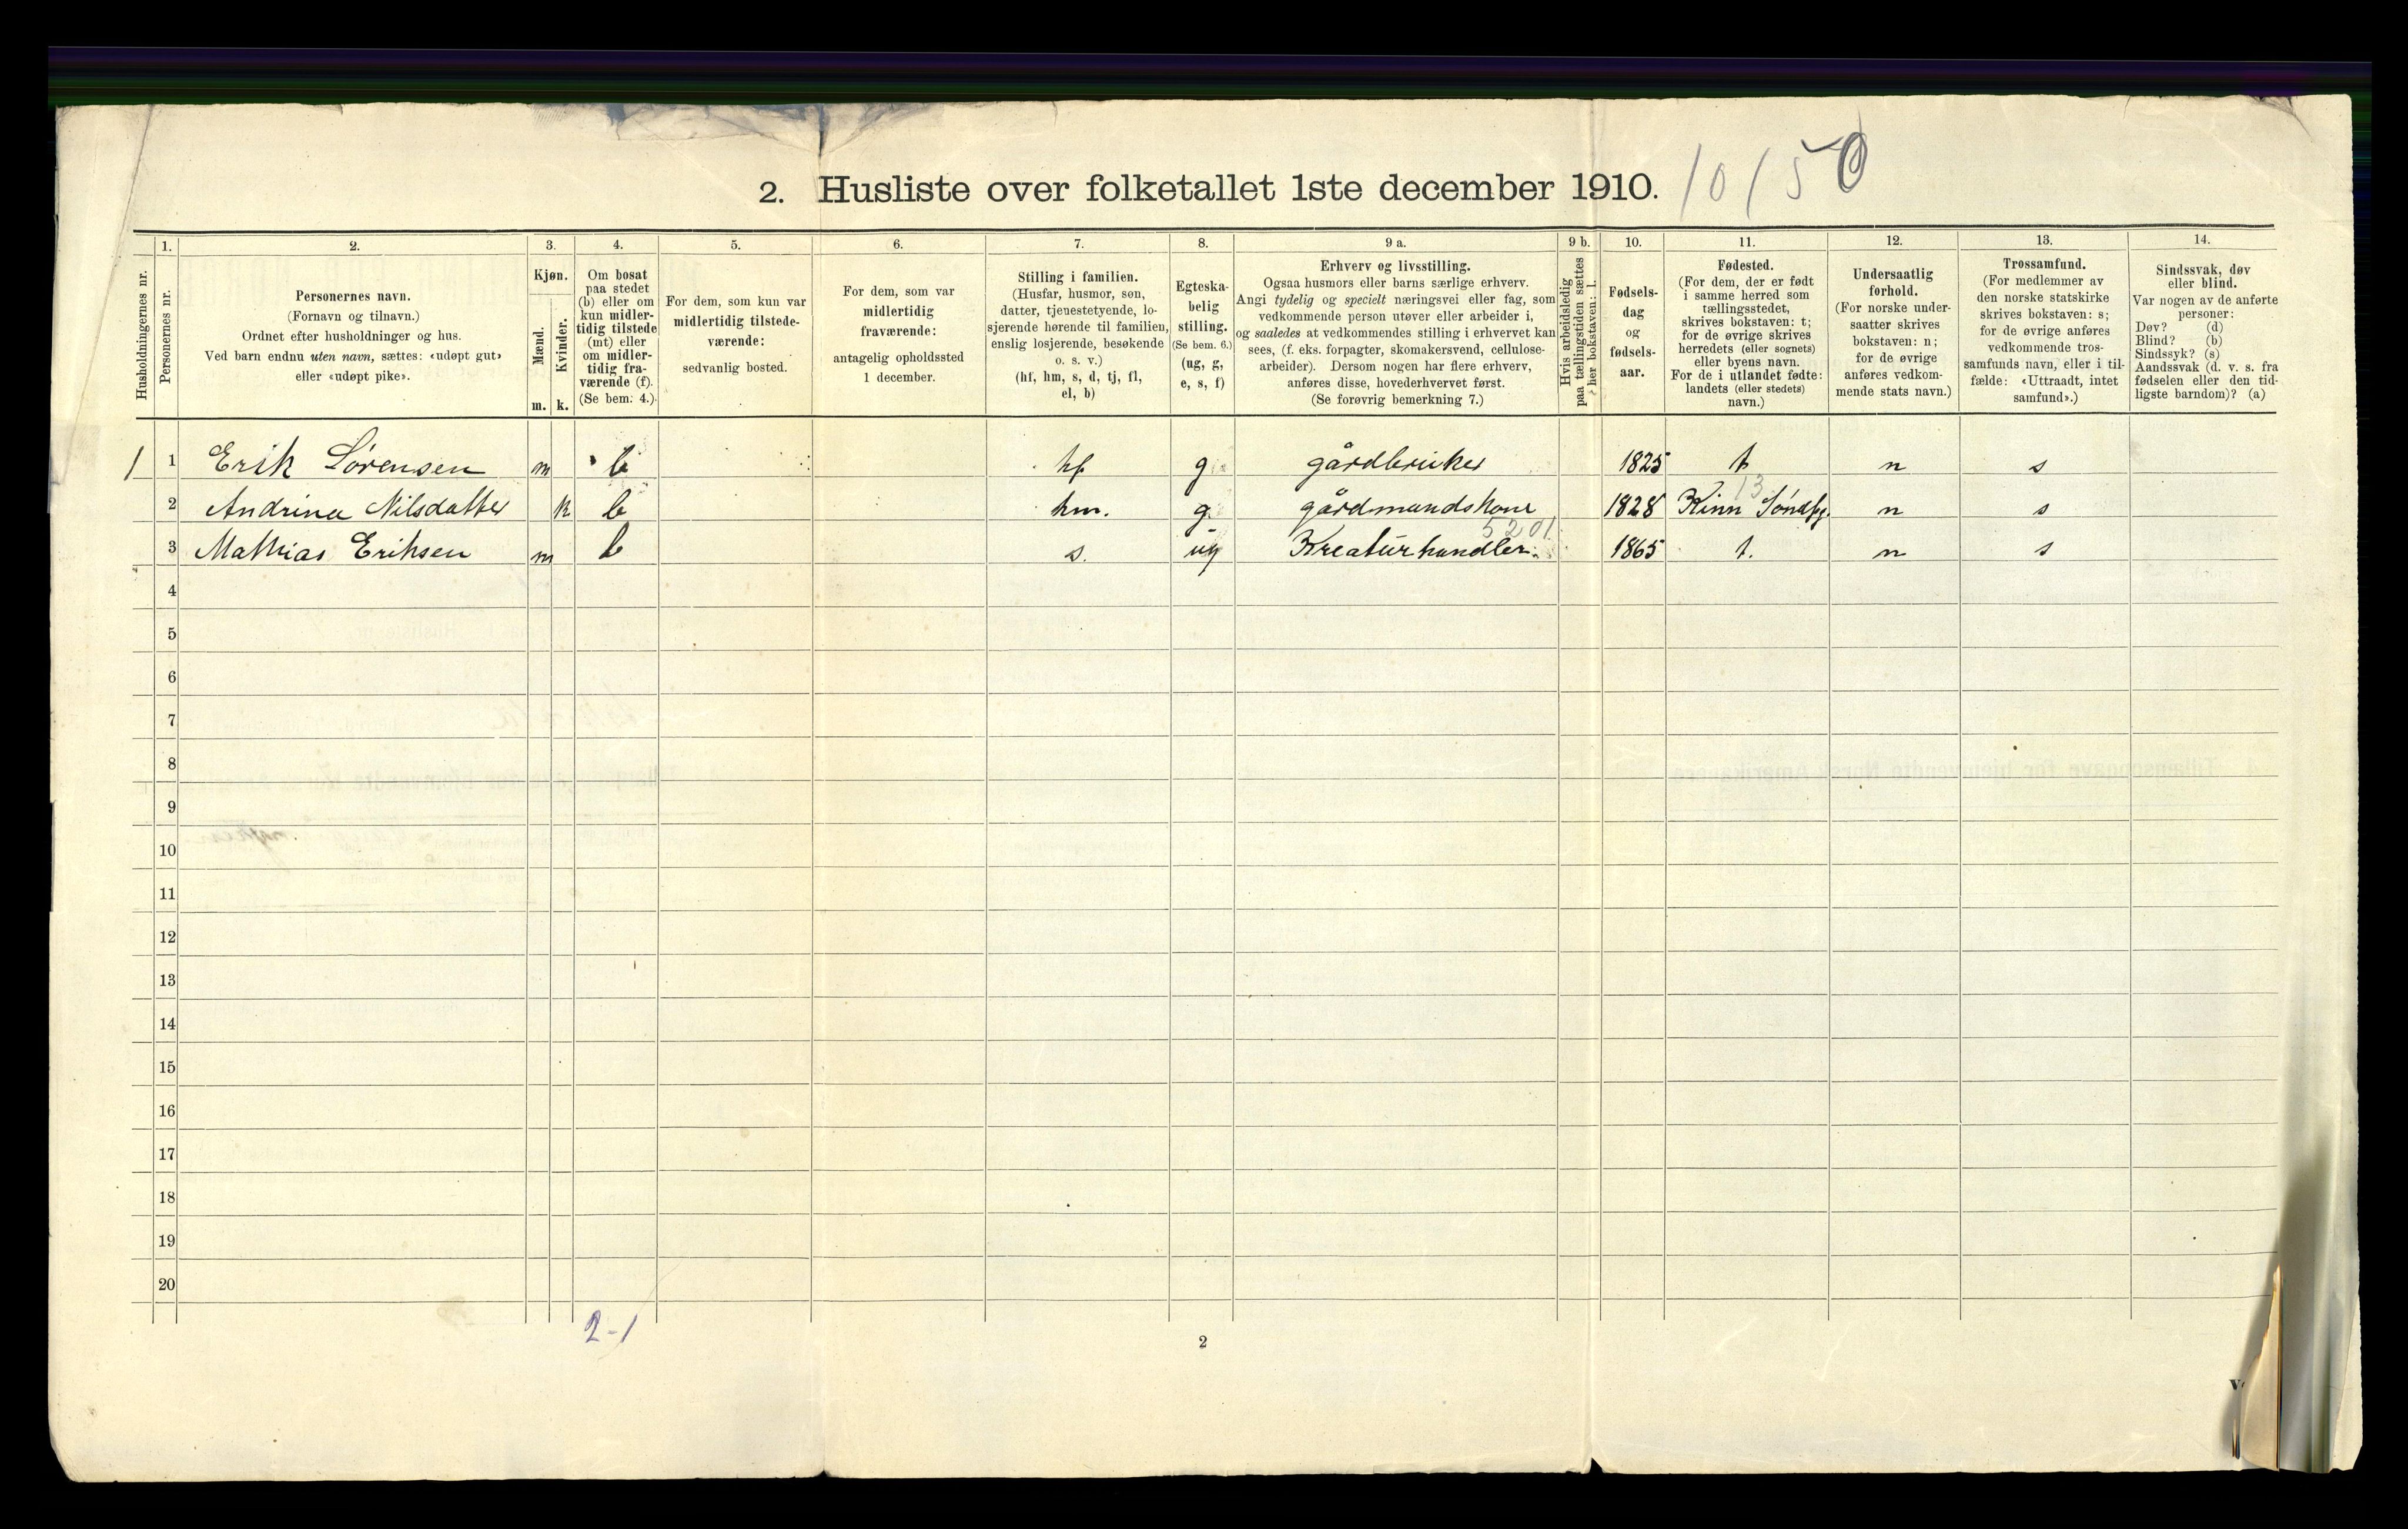 2. Husliste over folketallet 1ste december 1910. 10/50
1. 2. 3. 4. 5. 6. 7. 8. 9 a. 9 b. 10. 11. 12. 13. 14.
Husholdningernes nr.
Personernes nr.
Personernes navn.
(Fornavn og tilnavn.)
Ordnet efter husholdninger og hus.
Ved barn endnu uten navn, sættes: «udøpt gut»
eller «udøpt pike».
Kjøn.
Mænd.
Kvinder.
m. k.
Om bosat
paa stedet
(b) eller om
kun midler-
tidig tilstede
(mt) eller
om midler-
tidig fra-
værende (f).
(Se bem. 4.)
For dem, som kun var
midlertidig tilstede-
værende:
sedvanlig bosted.
For dem, som var
midlertidig
fraværende:
antagelig opholdssted
1 december.
Stilling i familien.
(Husfar, husmor, søn,
datter, tjenestetyende, lo-
sjerende hørende til familien,
enslig losjerende, besøkende
o. s. v.)
(hf, hm, s, d, tj, fl,
el, b)
Egteska-
belig
stilling.
(Se bem. 6.)
(ug, g,
e, s, f)
Erhverv og livsstilling.
Ogsaa husmors eller barns særlige erhverv.
Angi tydelig og specielt næringsvei eller fag, som
vedkommende person utøver eller arbeider i,
og saaledes at vedkommendes stilling i erhvervet kan
sees, (f. eks. forpagter, skomakersvend, cellulose-
arbeider). Dersom nogen har flere erhverv,
anføres disse, hovederhvervet først.
(Se forøvrig bemerkning 7.)
Hvis arbeidsledig
paa tællingstiden sættes
her bokstaven: l.
Fødsels-
dag
og
fødsels-
aar.
Fødested.
(For dem, der er født
i samme herred som
tællingsstedet,
skrives bokstaven: t;
for de øvrige skrives
herredets (eller sognets)
eller byens navn.
For de i utlandet fødte:
landets (eller stedets)
navn.)
Undersaatlig
forhold.
(For norske under-
saatter skrives
bokstaven: n;
for de øvrige
anføres vedkom-
mende stats navn.)
Trossamfund.
(For medlemmer av
den norske statskirke
skrives bokstaven: s;
for de øvrige anføres
vedkommende tros-
samfunds navn, eller i til-
fælde: «Uttraadt, intet
samfund».)
Sindssvak, døv
eller blind.
Var nogen av de anførte
personer:
Døv? (d)
Blind? (b)
Sindssyk? (s)
Aandssvak (d. v. s. fra
fødselen eller den tid-
ligste barndom)? (a)
1 1 Erik Sørensen m b hf g gårdbruker 1825 t n s
13
2 Andrina Nilsdatter k b hm. g gårdmandskone 1828 Kinn Søndfj. n s
5201
3 Mathias Eriksen m b s. ug Kreaturhandler. 1865 t. n s
4
5
6
7
8
9
10
11
12
13
14
15
16
17
18
19
20
2-1
2